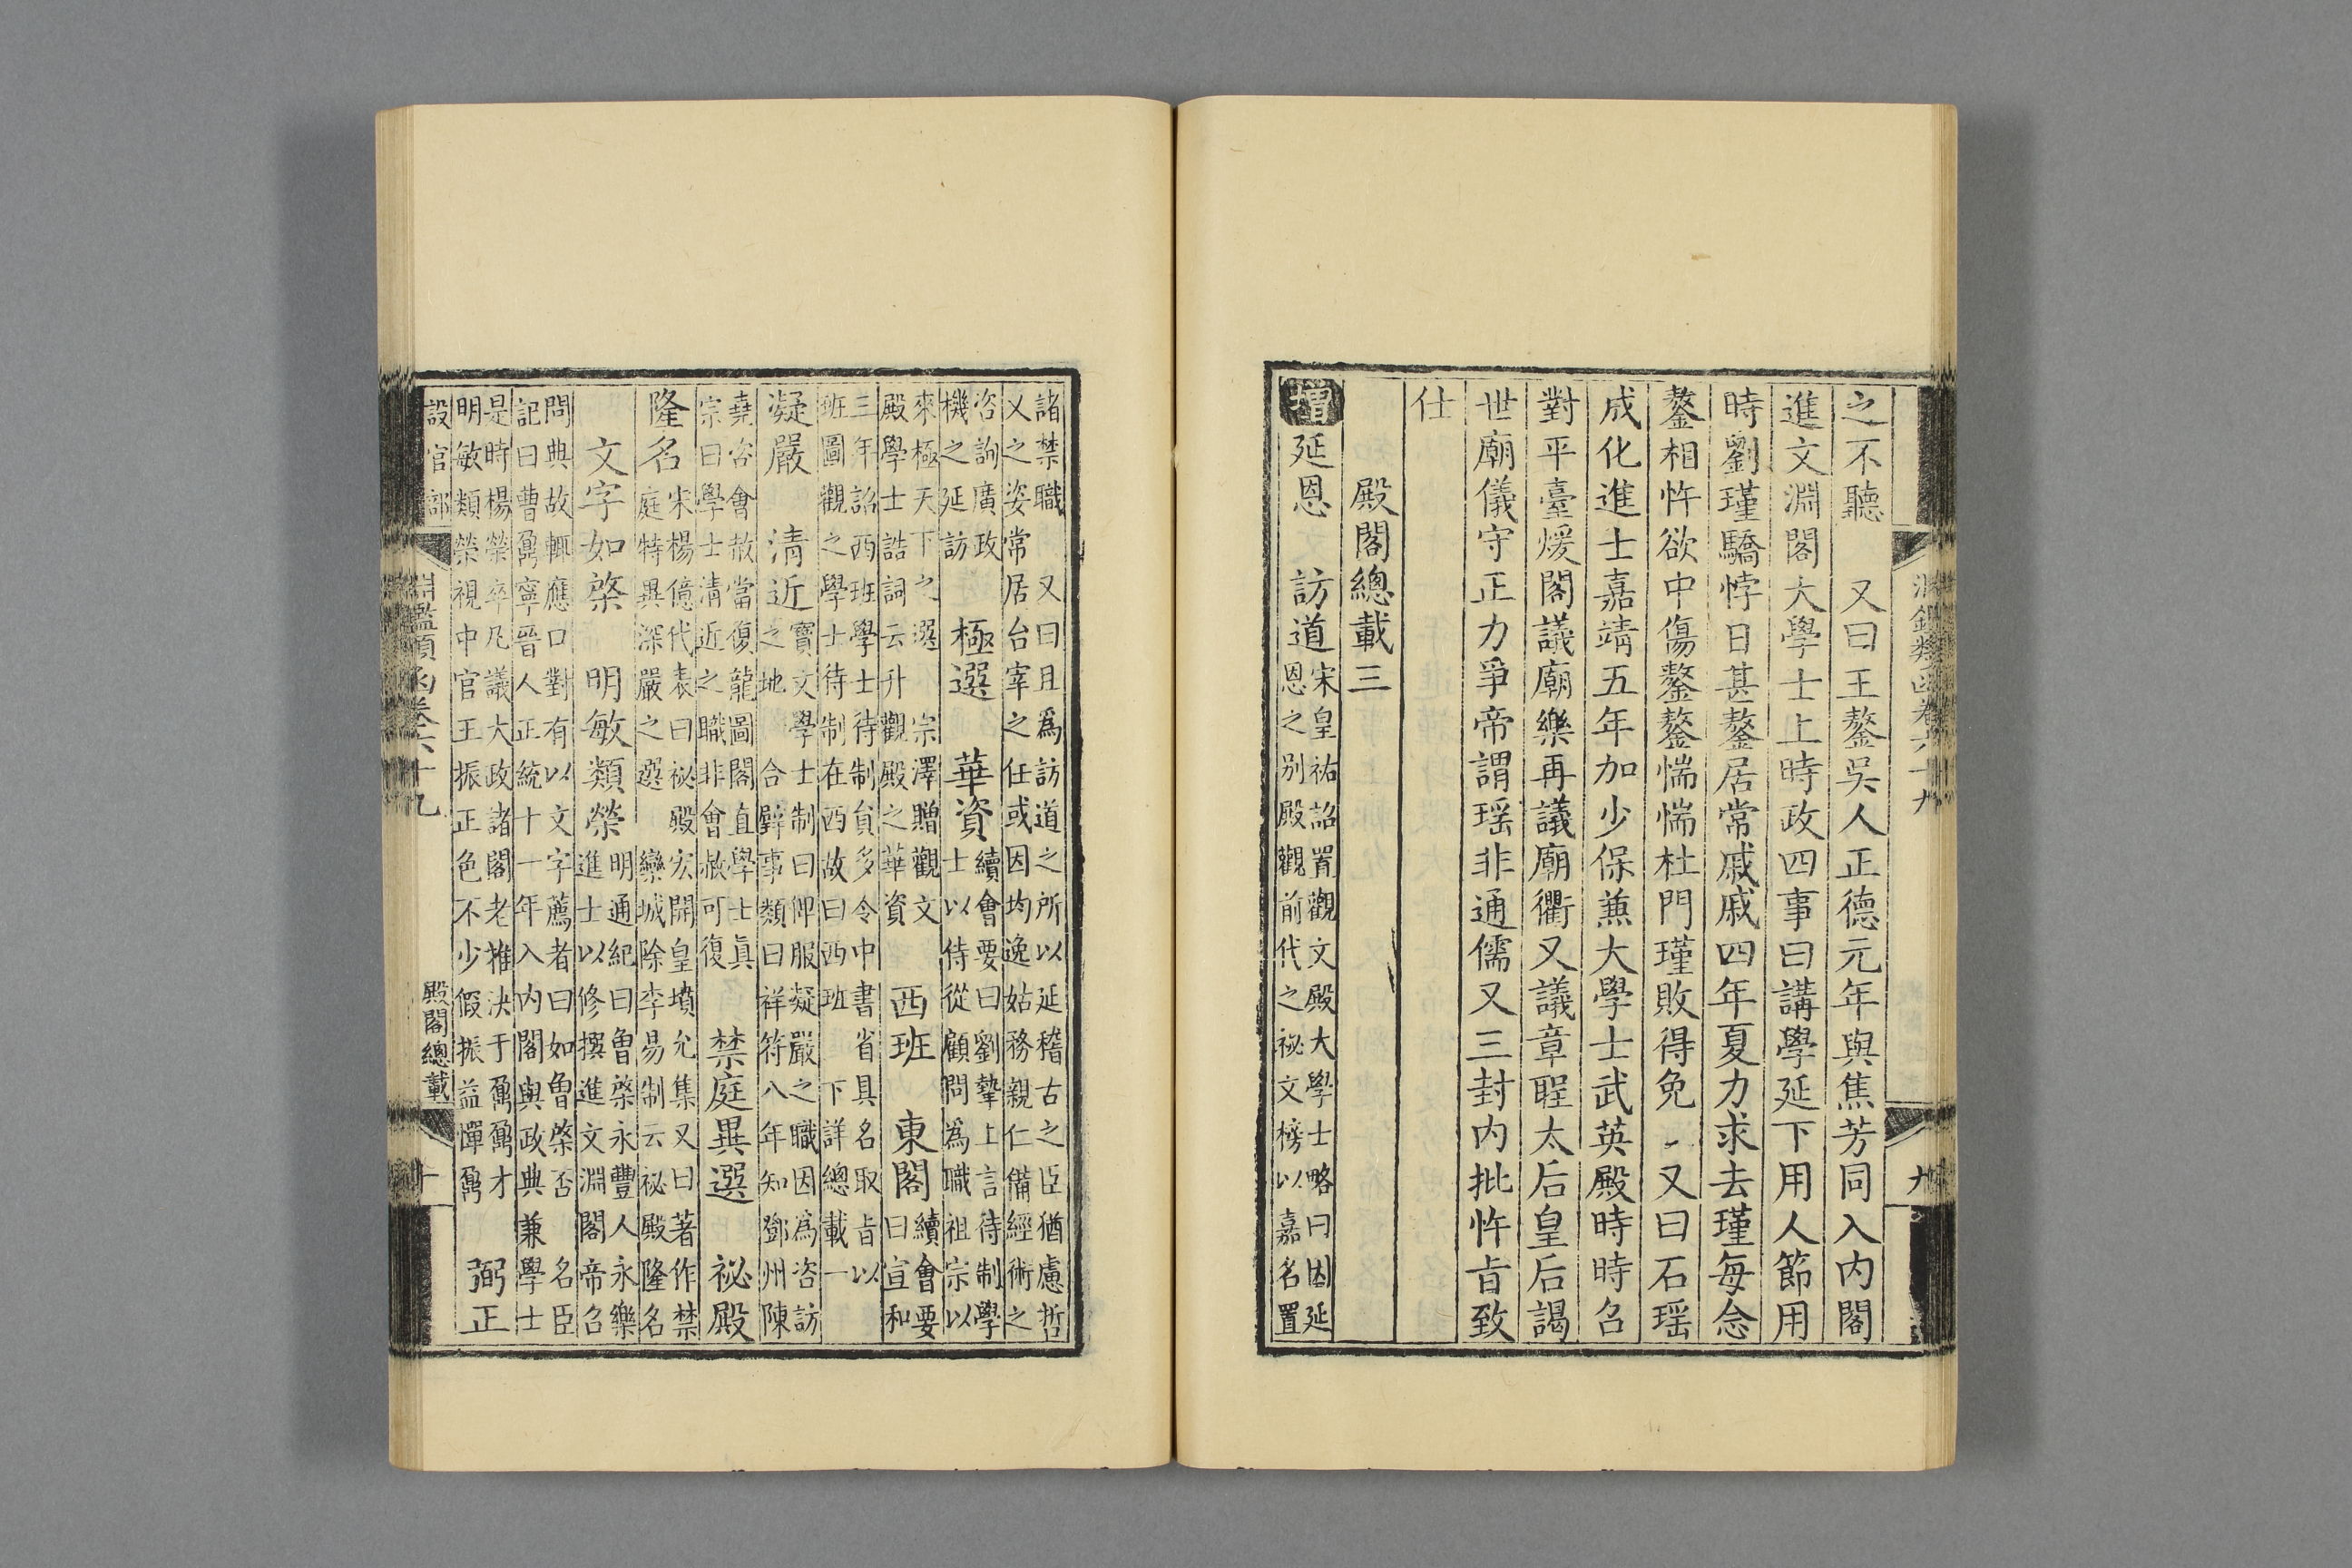 之不聽　又曰王鏊吳人正德元年與焦芳同入內閣
進文淵閣大學士上時政四事曰講學延下用人節用
時劉瑾驕悖日甚鏊居常戚戚四年夏力求去瑾每念
鏊相忤欲中傷鏊鏊惴惴杜門瑾敗得免　又曰石瑶
成化進士嘉靖五年加少保蕪大學士武英殿時時召
對平臺煖閣議廟樂再議廟衢又議章聖太后皇后謁
世廟儀守正力爭帝謂瑶非通儒又三封内批忤旨致
仕
殿閣總載三
增延恩　訪道
宋皇祐詔置觀文殿大學士略曰因延
恩之別殿觀前代之祕文榜以嘉名置
諸禁職　又曰且爲訪道之所以延稽古之臣猶慮哲
乂之姿常居台宰之任或因均逸姑務親仁備經術之
咨詢廣政
機之延訪
極選　華資
續會要曰劉摯上言待制學
士以待從顧問為職祖宗以
來極天下之選　宗澤贈觀文
殿學士誥詞云升觀殿之華資
西班　東閣
續會要
曰宣和
三年詔西班學士待制貟多令中書省具名取旨以
班圖觀之學士待制在西故曰西班　下詳總載一
凝嚴　清近
寶文學士制曰仰服凝嚴之職因為咨訪
之地　合璧事類曰祥符八年知鄧州陳
堯咨會赦當復龍圖閣直學士真
宗曰學士清近之職非會赦可復
禁庭異選　祕殿
隆名
宋楊億代表曰祕殿宏開皇墳允集又曰著作禁
庭特異深嚴之選　欒城除李易制云祕殿隆名
文字如棨　明敏類榮
明通紀曰魯棨永豐人永樂
進士以修撰進文淵閣帝召
問典故輒應口對有以文字薦者曰如魯棨否　名臣
記曰曹鼐寧晉人正統十一年入內閣與政典兼學士
是時楊榮卒凡議大政諸閣老推決于鼐鼐才
明敏類榮視中官王振正色不少假振益憚鼐
弼正
設官部
淵鑑類函卷六十九
殿閣總載
十
淵鑑類函卷六十九
九